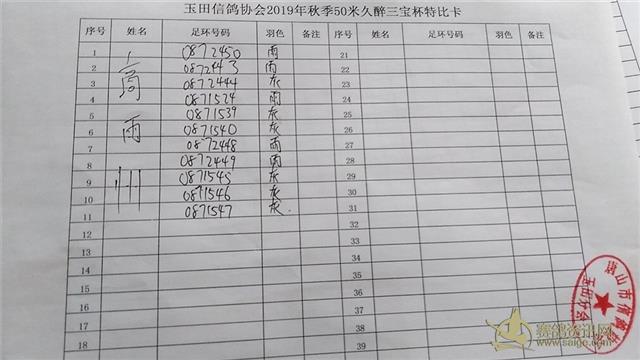 玉田信鸽协会2019年秋季50米久醉三宝杯特比卡
序号 姓名 足环号码 羽色 备注 序号 姓名 足环号码 羽色 备注
1 0872450 雨 21
2 商 0872443 雨 22
3 0872444 灰 23
4 0871524 雨 24
5 0871539 灰 25
6 雨 0871540 灰 26
7 0872448 雨 27
8 0872449 雨 28
9 州 0871545 灰 29
10 0871546 灰 30
11 0871547 灰 31
12 32
13 33
14 34
15 35
16 36
17 37
18 39
唐山市信鸽协会
玉田分会
赛鸽资讯网
www.saige.com